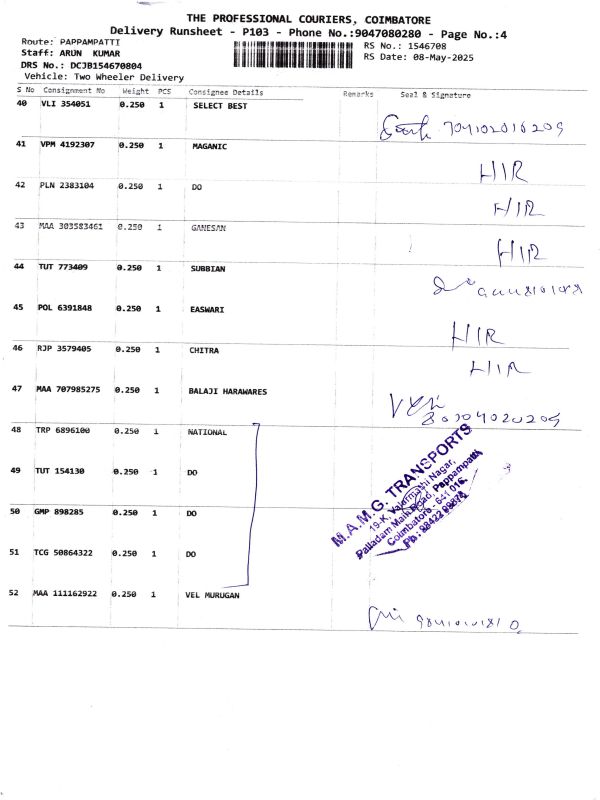 THE PROFESSIONAL COURIERS, COIMBATORE
Delivery Runsheet - P103 - Phone No.:9047080280 - Page No.:4
Route: PAPPAMPATTI
RS No.: 1546708
Staff: ARUN KUMAR
RS Date: 08-May-2025
DRS No.: DCJB154670804
Vehicle: Two Wheeler Delivery
S No Consignment No Weight PCS Consignee Details Remarks Seal & Signature
40 VLI 354051 0.250 1 SELECT BEST
41 VPM 4192307 0.250 1 MAGANIC
HIR
42 PLN 2383104 0.250 1 DO
HIR
43 MAA 303583461 0.250 1 GANESAN
HIR
44 TUT 773409 0.250 1 SUBBIAN
45 POL 6391848 0.250 1 EASWARI
HIR
46 RJP 3579405 0.250 1 CHITRA
HIR
47 MAA 707985275 0.250 1 BALAJI HARAWARES
48 TRP 6896100 0.250 1 NATIONAL
49 TUT 154130 0.250 1 DO
50 GMP 898285 0.250 1 DO
51 TCG 50864322 0.250 1 DO
M.A.M.G. TRANSPORTS
19-K, Valarmathi Nagar,
Palladam Main Road, Pappampatti
Coimbatore - 641 016.
52 MAA 111162922 0.250 1 VEL MURUGAN